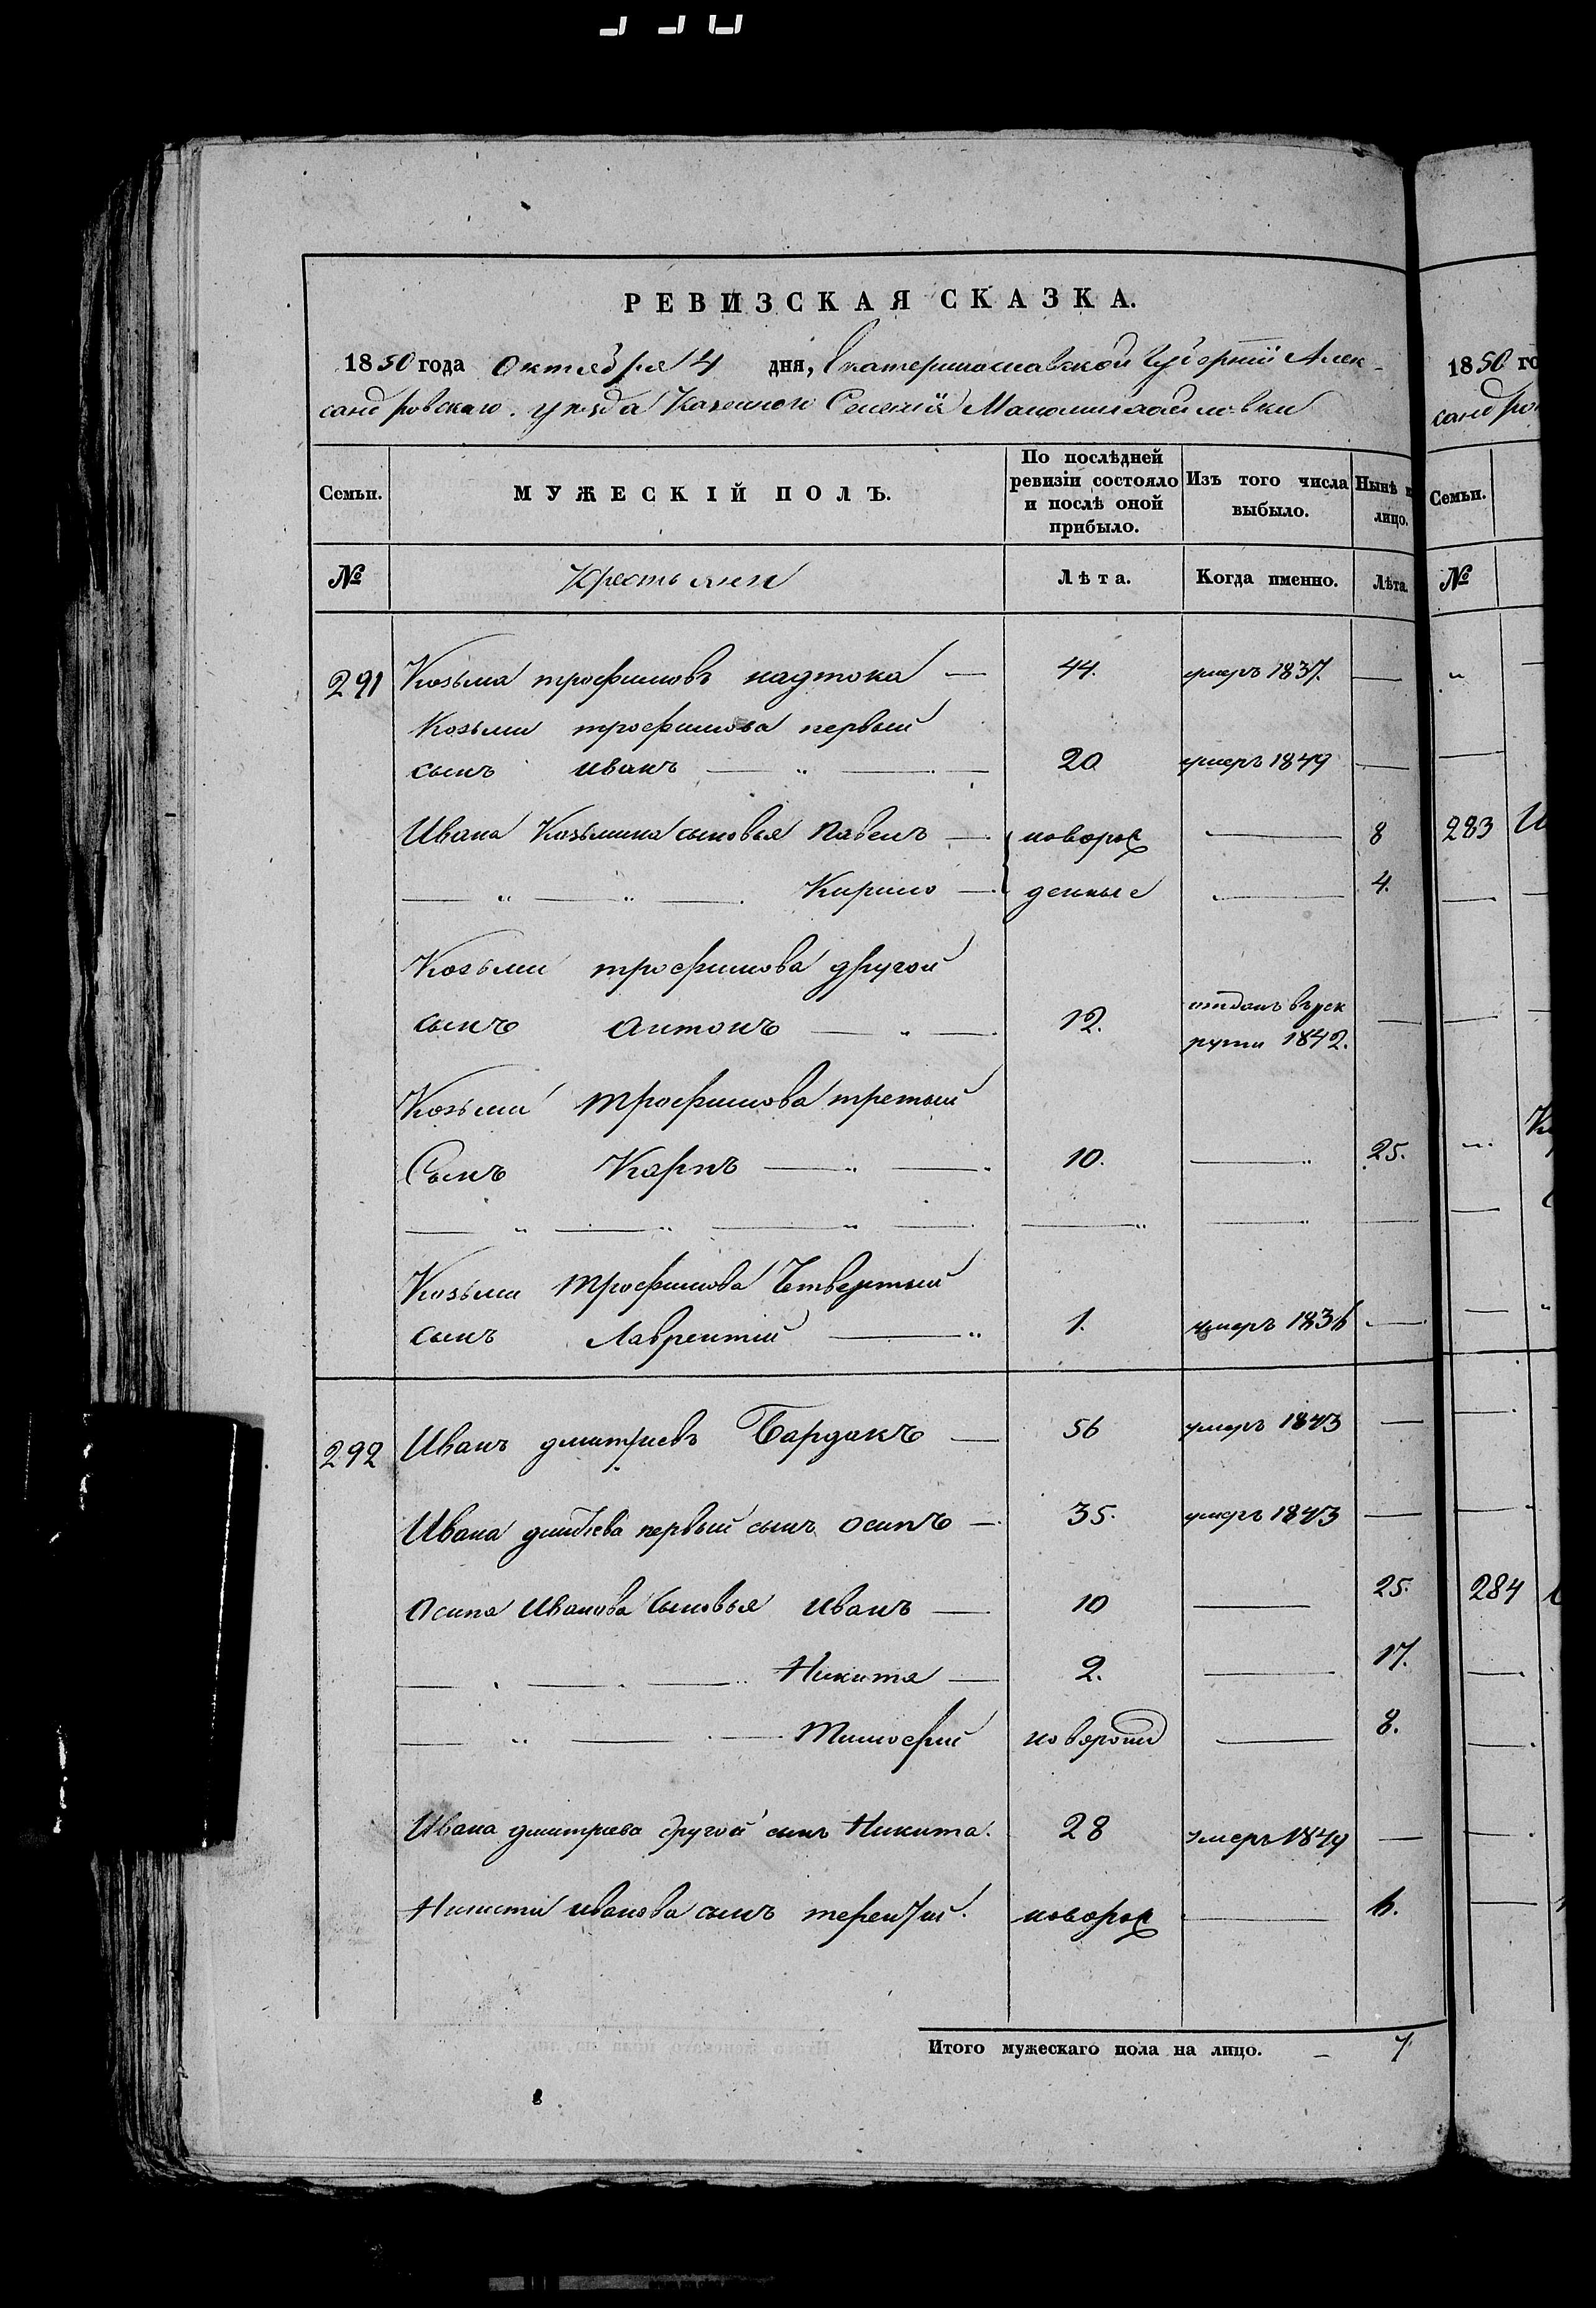 РЕВИЗСКАЯ СКАЗКА.
1850 года Октября 4 дня, Екатеринославской Губернии Алек-
сандровскаго уѣзда Казенного Селенія Маломихайловки
Семьи. МУЖЕСКІЙ ПОЛЪ. По послѣдней ревизіи состояло и послѣ оной прибыло. Изъ того числа выбыло. Нынѣ н лицо.
№ Крестьяни Лѣта. Когда именно. Лѣта.
291 Козьма трофимовъ надтока — 44. умеръ 1837. —
Козьми трофимова первый
сынъ иванъ — 20 умеръ 1849 —
Ивана Козьмина сыновья павелъ — новорож — 8
Кирило — денные — 4.
Козьми трофимова другой
сынъ антонъ — 12. отданъ въ рек
руты 1842. —
Козьми трофимова третьий
Сынъ Карпъ — 10. — 25.
Козьми трофимова Четвертый
сынъ Лаврентій — 1. умеръ 1836 —
292 Иванъ дмитриевъ Бардакъ — 56 умеръ 1843 —
Ивана дмитріева первый сынъ осипъ — 35. умеръ 1843 —
осипа Иванова Сыновья иванъ — 10 — 25.
Никита — 2. — 17.
Тимофий новорожд — 8.
Ивана дмитриева другой сынъ Никита. 28 умеръ 1849 —
Никиты иванова сынъ терентій. новорож — 6.
Итого мужескаго пола на лицо. — 7.
1850 го
санд ро
Семьи.
№
283 И
284